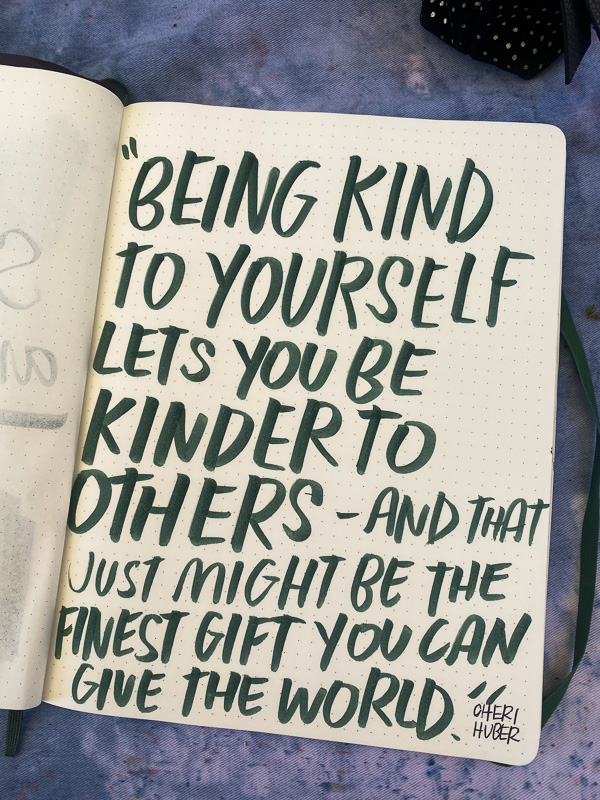 "BEING KIND
TO YOURSELF
LETS YOU BE
KINDER TO
OTHERS - AND THAT
JUST MIGHT BE THE
FINEST GIFT YOU CAN
GIVE THE WORLD."
CHERI
HUBER